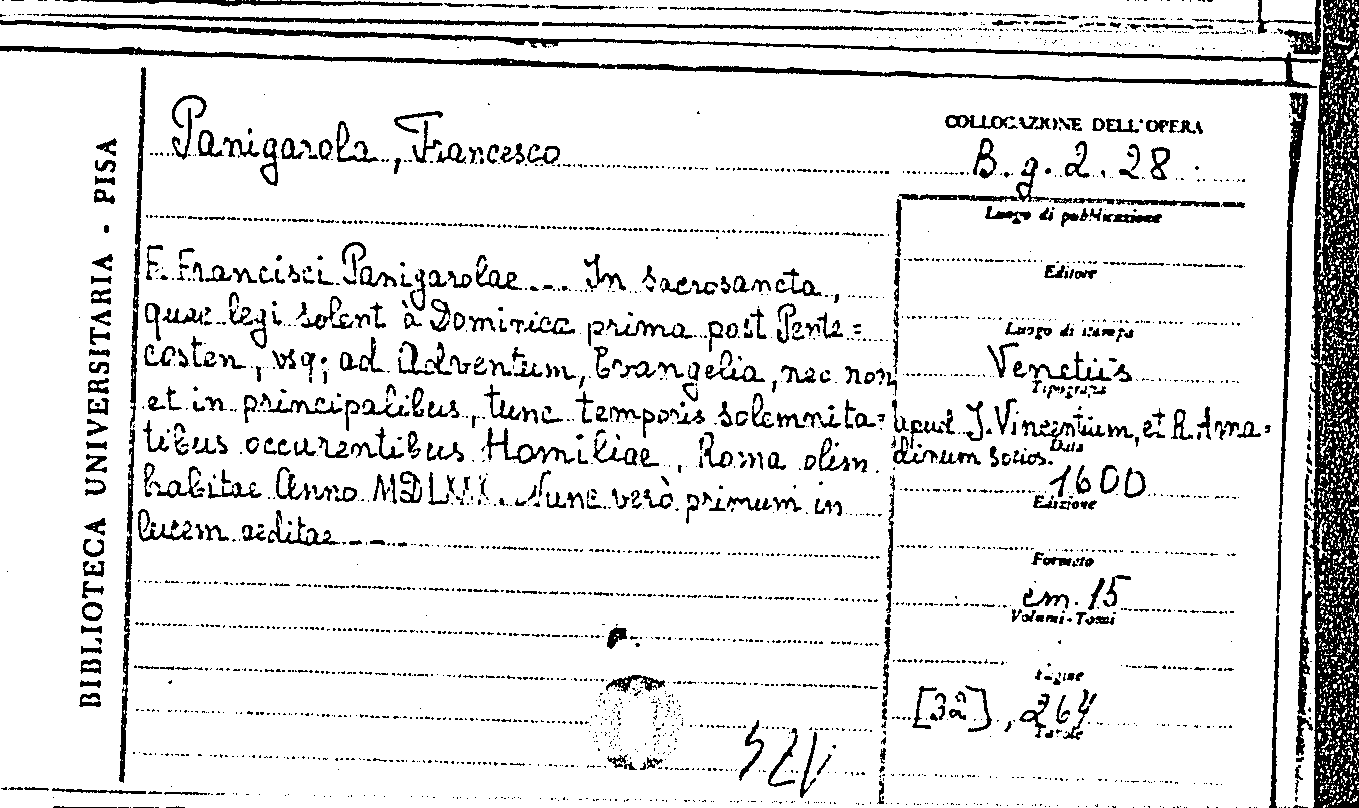 BIBLIOTECA UNIVERSITARIA - PISA
Panigarola, Francesco
COLLOCAZIONE DELL'OPERA
B.g.2.28.
F. Francisci Panigarolae ... In sacrosancta,
quae legi solent à Dominica prima post Pente=
costen, vsq; ad Adventum, Evangelia, nec non
et in principalibus, tunc temporis solemnita=
tibus occurentibus Homiliae, Roma olim
habitae Anno MDLXXX. Nunc verò primum in
lucem aeditae ...
Luogo di pubblicazione
Editore
Luogo di stampa
Venetiis
Tipografia
apud J. Vincentium, et R. Ama=
dinum socios.
Data
1600
Edizione
Formato
cm. 15
Volumi-Tomi
Pagine
[32], 264
Tavole